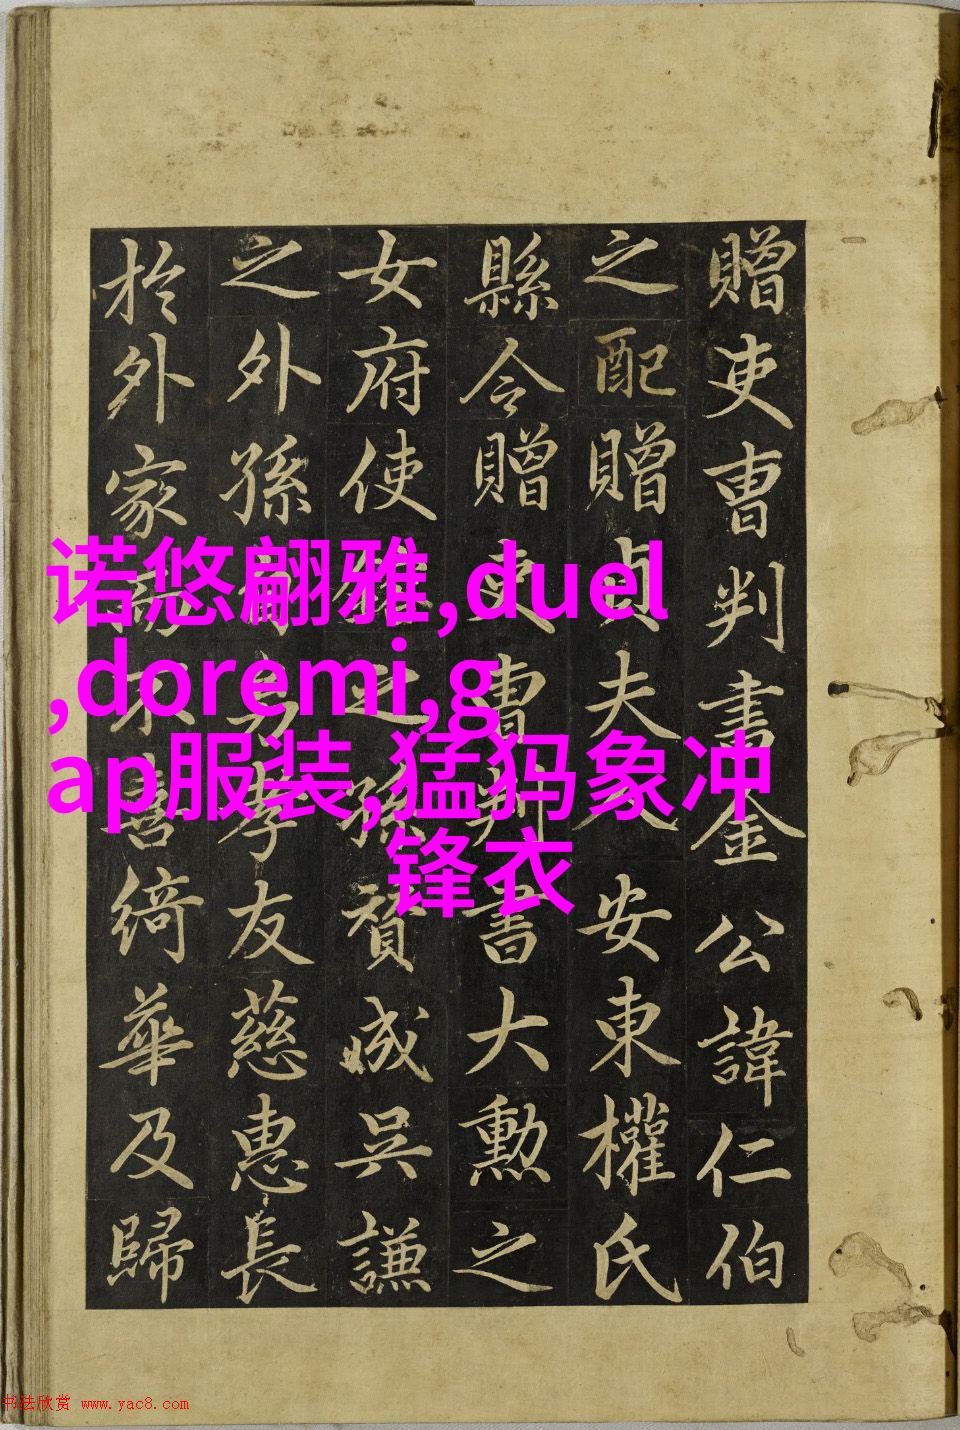 贈吏曹判書金公諱仁伯
之配贈貞夫人安東權氏
縣令贈吏曹判書大勲之
女府使之孫賛成吳謙
之外孫孝友慈惠長
於外家不喜綺華及歸
诺悠翩雅,duel
,doremi,g
ap服装,猛犸象冲
锋衣
书法欣赏 www.yac8.com